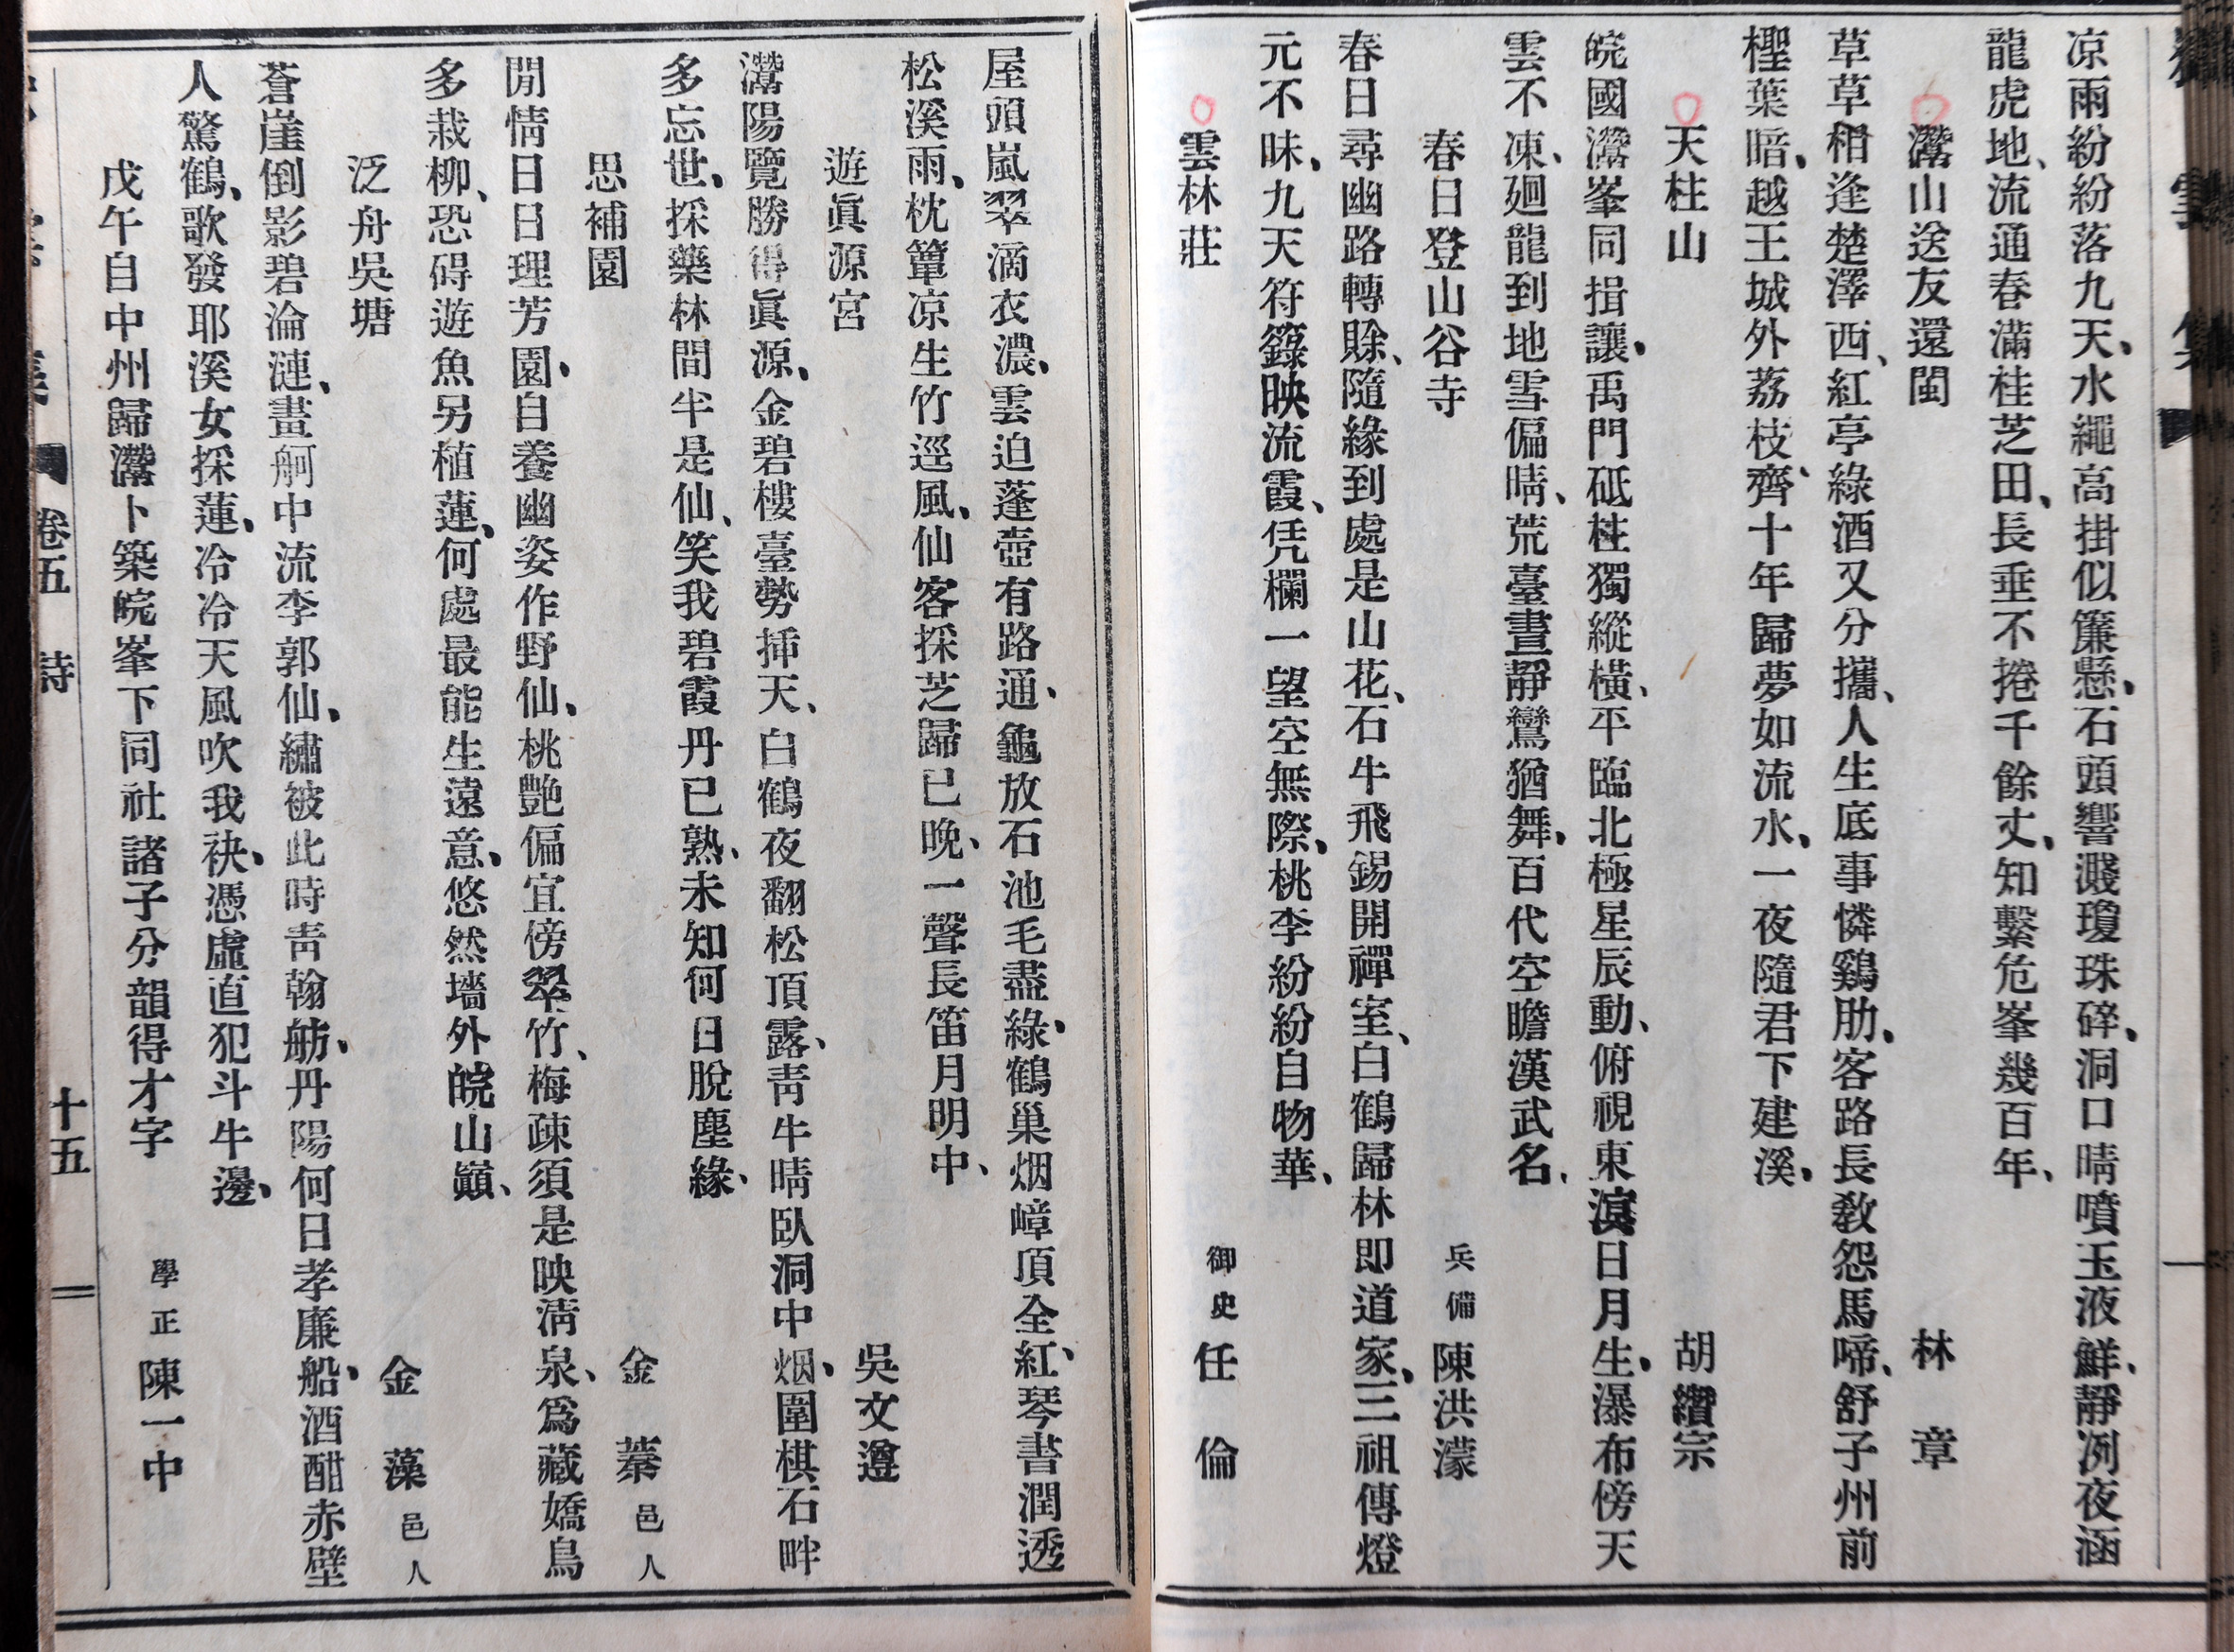 凉雨紛紛落九天、水繩高掛似簾懸、石頭響濺瓊珠碎、洞口晴噴玉液鮮、靜冽夜涵
龍虎地、流通春滿桂芝田、長垂不捲千餘丈、知繫危峯幾百年、
灊山送友還閩 林章
草草相逢楚澤西、紅亭綠酒又分攜、人生底事憐鷄肋、客路長教怨馬啼、舒子州前
檉葉暗、越王城外荔枝齊、十年歸夢如流水、一夜隨君下建溪、
天柱山 胡纘宗
皖國灊峯同揖讓、禹門砥柱獨縱橫、平臨北極星辰動、俯視東溟日月生、瀑布傍天
雲不凍、廻龍到地雪偏晴、荒臺晝靜鸞猶舞、百代空瞻漢武名、
春日登山谷寺 兵備陳洪濛
春日尋幽路轉賒、隨緣到處是山花、石牛飛錫開禪室、白鶴歸林即道家、三祖傳燈
元不昧、九天符籙映流霞、凭欄一望空無際、桃李紛紛自物華、
雲林莊 御史任倫
屋頭嵐翠滴衣濃、雲迫蓬壺有路通、龜放石池毛盡綠、鶴巢烟嶂頂全紅、琴書潤透
松溪雨、枕簟凉生竹逕風、仙客採芝歸已晚、一聲長笛月明中、
遊眞源宮 吳文遵
灊陽覽勝得眞源、金碧樓臺勢揷天、白鶴夜翻松頂露、靑牛晴臥洞中烟、圍棋石畔
多忘世、採藥林間半是仙、笑我碧霞丹已熟、未知何日脫塵緣、
思補園 金蓁邑人
閒情日日理芳園、自養幽姿作野仙、桃艷偏宜傍翠竹、梅疎須是映淸泉、爲藏嬌鳥
多栽柳、恐碍遊魚另植蓮、何處最能生遠意、悠然墻外皖山巔、
泛舟吳塘 金藻邑人
蒼崖倒影碧淪漣、畫舸中流李郭仙、繡被此時靑翰舫、丹陽何日孝廉船、酒酣赤壁
人驚鶴、歌發耶溪女採蓮、冷冷天風吹我袂、憑虛直犯斗牛邊、
戊午自中州歸灊卜築皖峯下同社諸子分韻得才字 學正陳一中
卷五 詩 十五